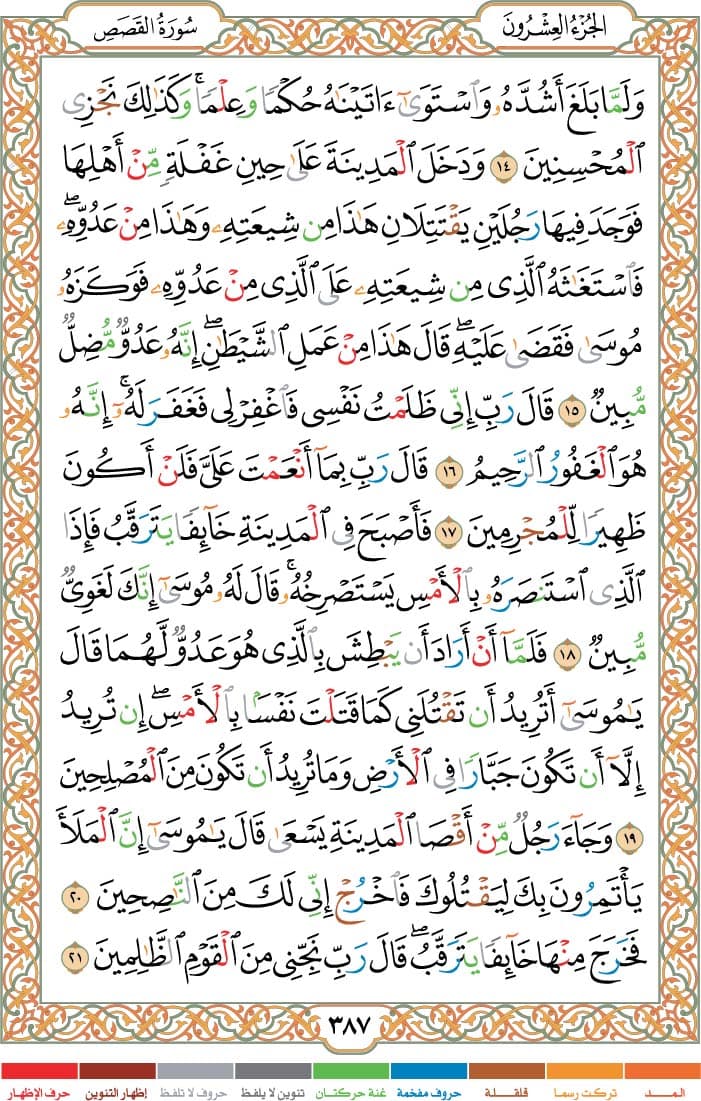 الجُزْءُ العِشْرُونَ
سُورَةُ القَصَصِ
وَلَمَّا بَلَغَ أَشُدَّهُۥ وَٱسْتَوَىٰٓ ءَاتَيْنَٰهُ حُكْمًا وَعِلْمًا ۚ وَكَذَٰلِكَ نَجْزِى
ٱلْمُحْسِنِينَ ١٤ وَدَخَلَ ٱلْمَدِينَةَ عَلَىٰ حِينِ غَفْلَةٍ مِّنْ أَهْلِهَا
فَوَجَدَ فِيهَا رَجُلَيْنِ يَقْتَتِلَانِ هَٰذَا مِن شِيعَتِهِۦ وَهَٰذَا مِنْ عَدُوِّهِۦ ۖ
فَٱسْتَغَٰثَهُ ٱلَّذِى مِن شِيعَتِهِۦ عَلَى ٱلَّذِى مِنْ عَدُوِّهِۦ فَوَكَزَهُۥ
مُوسَىٰ فَقَضَىٰ عَلَيْهِ ۖ قَالَ هَٰذَا مِنْ عَمَلِ ٱلشَّيْطَٰنِ ۖ إِنَّهُۥ عَدُوٌّ مُّضِلٌّ
مُّبِينٌ ١٥ قَالَ رَبِّ إِنِّى ظَلَمْتُ نَفْسِى فَٱغْفِرْ لِى فَغَفَرَ لَهُۥٓ ۚ إِنَّهُۥ
هُوَ ٱلْغَفُورُ ٱلرَّحِيمُ ١٦ قَالَ رَبِّ بِمَآ أَنْعَمْتَ عَلَىَّ فَلَنْ أَكُونَ
ظَهِيرًا لِّلْمُجْرِمِينَ ١٧ فَأَصْبَحَ فِى ٱلْمَدِينَةِ خَآئِفًا يَتَرَقَّبُ فَإِذَا
ٱلَّذِى ٱسْتَنصَرَهُۥ بِٱلْأَمْسِ يَسْتَصْرِخُهُۥ ۚ قَالَ لَهُۥ مُوسَىٰٓ إِنَّكَ لَغَوِىٌّ
مُّبِينٌ ١٨ فَلَمَّآ أَنْ أَرَادَ أَن يَبْطِشَ بِٱلَّذِى هُوَ عَدُوٌّ لَّهُمَا قَالَ
يَٰمُوسَىٰٓ أَتُرِيدُ أَن تَقْتُلَنِى كَمَا قَتَلْتَ نَفْسًۢا بِٱلْأَمْسِ ۖ إِن تُرِيدُ
إِلَّآ أَن تَكُونَ جَبَّارًا فِى ٱلْأَرْضِ وَمَا تُرِيدُ أَن تَكُونَ مِنَ ٱلْمُصْلِحِينَ
١٩ وَجَآءَ رَجُلٌ مِّنْ أَقْصَا ٱلْمَدِينَةِ يَسْعَىٰ قَالَ يَٰمُوسَىٰٓ إِنَّ ٱلْمَلَأَ
يَأْتَمِرُونَ بِكَ لِيَقْتُلُوكَ فَٱخْرُجْ إِنِّى لَكَ مِنَ ٱلنَّٰصِحِينَ ٢٠
فَخَرَجَ مِنْهَا خَآئِفًا يَتَرَقَّبُ ۖ قَالَ رَبِّ نَجِّنِى مِنَ ٱلْقَوْمِ ٱلظَّٰلِمِينَ ٢١
٣٨٧
المـــد تركت رسما قلقـلة حروف مفخمة غنة حركتان تنوين لا يلفظ حروف لا تلفظ إظهار التنوين حرف الإظهار